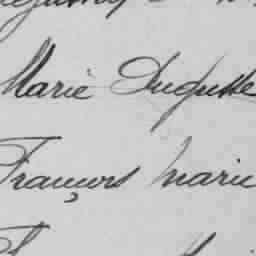 Marie Auguste
François Marie